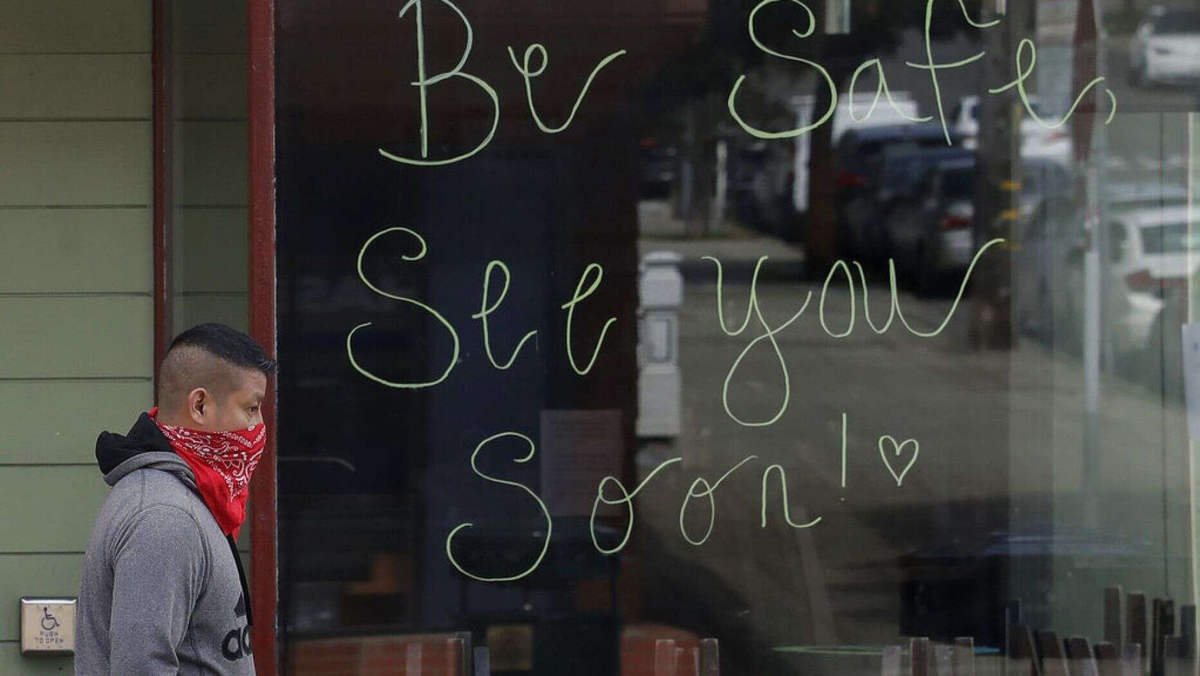 Be Safe,
See you
Soon! ♡
PUSH
TO OPEN